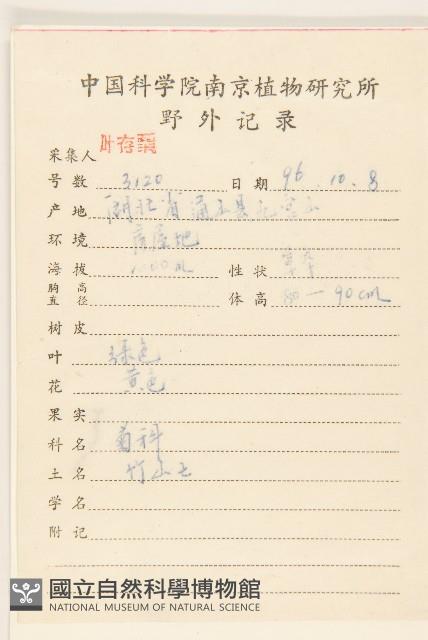 中国科学院南京植物研究所
野外记录
采集人 叶存粟
号数 3120 日期 96.10.8
产地 湖北省通山县九宫山
环境
海拔 1000m 性状 草本
胸高直径 体高 80—90cm
树皮
叶 绿色
花 黄色
果实
科名 菊科
土名 竹山七
学名
附记
國立自然科學博物館
NATIONAL MUSEUM OF NATURAL SCIENCE